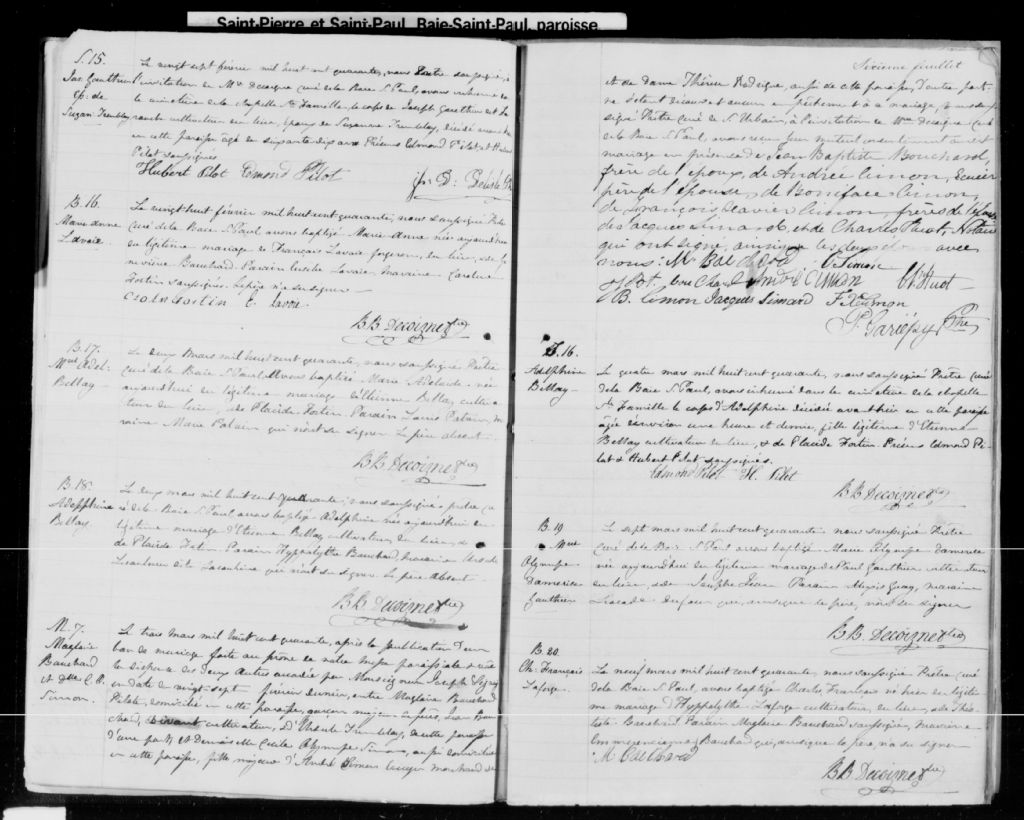 Saint-Pierre et Saint-Paul, Baie-Saint-Paul, paroisse
S. 15.
Jos. Gauthier
Ep: de
Suzan: Tremblay
Le vingt sept février mil huit cent quarante, nous Prêtre soussigné,
l'invitation de Mr Decoigne curé de la Baie St Paul, avons inhumé dans
le cimetière de la chapelle Ste Famille, le corps de Joseph Gauthier dit La
rouche cultivateur du lieu, époux de Suzanne Tremblay, décédé avant hier
en cette paroisse âgé de soixante dix ans Présens Edmond Pilot et Hubert
Pilot soussignés
Hubert Pilot Edmond Pilot
B. 16.
Marie anne
Lavoie
Le vingt-huit février mil huit cent quarante, nous soussigné Prêtre
curé de la Baie St Paul avons baptisé Marie-Anne née aujourd'hui
en légitime mariage de François Lavoie forgeron, du lieu, & de
Bouchard. Parain Lavoie, maraine Caroline
Fortin soussignés. Le père n'a su signer
Fortin E. Lavoie
BB Decoigne Ptre
B. 17.
Mrie Adel.
Bellay
Le deux Mars mil huit cent quarante, nous soussigné Prêtre
curé de la Baie St Paul avons baptisé Marie Adelaïde née
aujourd'hui en légitime mariage d'Etienne Bellay cultiva
teur du lieu, & de Placide Fortin. Parain Louis ma
raine Marie qui n'ont su signer Le père absent.
BB Decoigne Ptre
B. 18.
Adolphine
Bellay
Le deux mars mil huit cent quarante, nous soussigné, prêtre cu
ré de la Baie St Paul avons baptisé Adolphine née aujourd'hui en
légitime mariage d'Etienne Bellay cultivateur, du lieu, &
de Placide Fortin. Parain Hyppolythe Bouchard, maraine Ursule
qui n'ont su signer Le père absent
BB Decoigne Ptre
M. 7.
Magloire
Bouchard
et Dlle C. O.
Simon.
Le trois mars mil huit cent quarante, après la publication d'un
ban de mariage faite au prône de notre messe paroissiale & vu
la dispense des deux autres accordée par Monseigneur Joseph Signay
en date du vingt-sept février dernier, entre Magloire Bouchard
Pilote, domicilié en cette paroisse, garçon majeur de feu Jean Bou
chard, vivant cultivateur, & d'Ursule Tremblay, de cette paroisse
d'une part et Demoiselle Cécile Olympe Simon, aussi domiciliée
en cette paroisse, fille majeure d'André Simon Ecuyer marchand
Sixième feuillet
et de dame Thérèse Rodrigue, aussi de cette paroisse, d'autre part
ne s'étant découvert aucun empêchement à ce mariage, nous sous
signé Prêtre curé de St Urbain, à l'invitation de Mr Decoigne curé
de la Baie St Paul, avons reçu leur mutuel consentement à cet
mariage en présence de Jean Baptiste Bouchard,
frère de l'époux, de André Cimon, Ecuier
père de l'épouse, de Boniface Cimon,
de François Xavier Cimon, frères de l'épouse
de Jacques Simard, et de Charles Huot, Notaire
qui ont signé, ainsi que les deux époux avec
nous. M Bouchard O Simon
André Cimon Ch Huot
B. Cimon Jacques Simard F X Cimon
P. Gariépy Ptre
S. 16.
Adolphine
Bellay
Le quatre mars mil huit cent quarante, nous soussigné Prêtre curé
de la Baie St Paul, avons inhumé dans le cimetière de la chapelle
Ste Famille le corps d'Adolphine décédée avant hier en cette paroisse
âgée environ une heure et demie, fille légitime d'Etienne
Bellay cultivateur du lieu, & de Placide Fortin Présens Edmond Pi
lot & Hubert Pilot soussignés.
Edmond Pilot H. Pilot
BB Decoigne Ptre
B. 19
Mrie
Olympe
Damerise
Gauthier
Le sept mars mil huit cent quarante nous soussigné Prêtre
curé de la Baie St Paul avons baptisé Marie Olympe Damerise
née aujourd'hui en légitime mariage de Paul Gauthier cultivateur
du lieu, & de Josephe Parain Alexis maraine
Dufour qui, ainsi que le père, n'ont su signer
BB. Decoigne Ptre
B. 20.
Ch. François
Laforge.
Le neuf mars mil huit cent quarante, nous soussigné Prêtre curé
de la Baie St Paul, avons baptisé Charles François né hier en légiti
me mariage d'Hyppolythe Laforge cultivateur, du lieu, & de
Parain Magloire Bouchard soussigné, maraine
Bouchard qui, ainsi que le père n'a su signer
M Bouchard
BB Decoigne Ptre